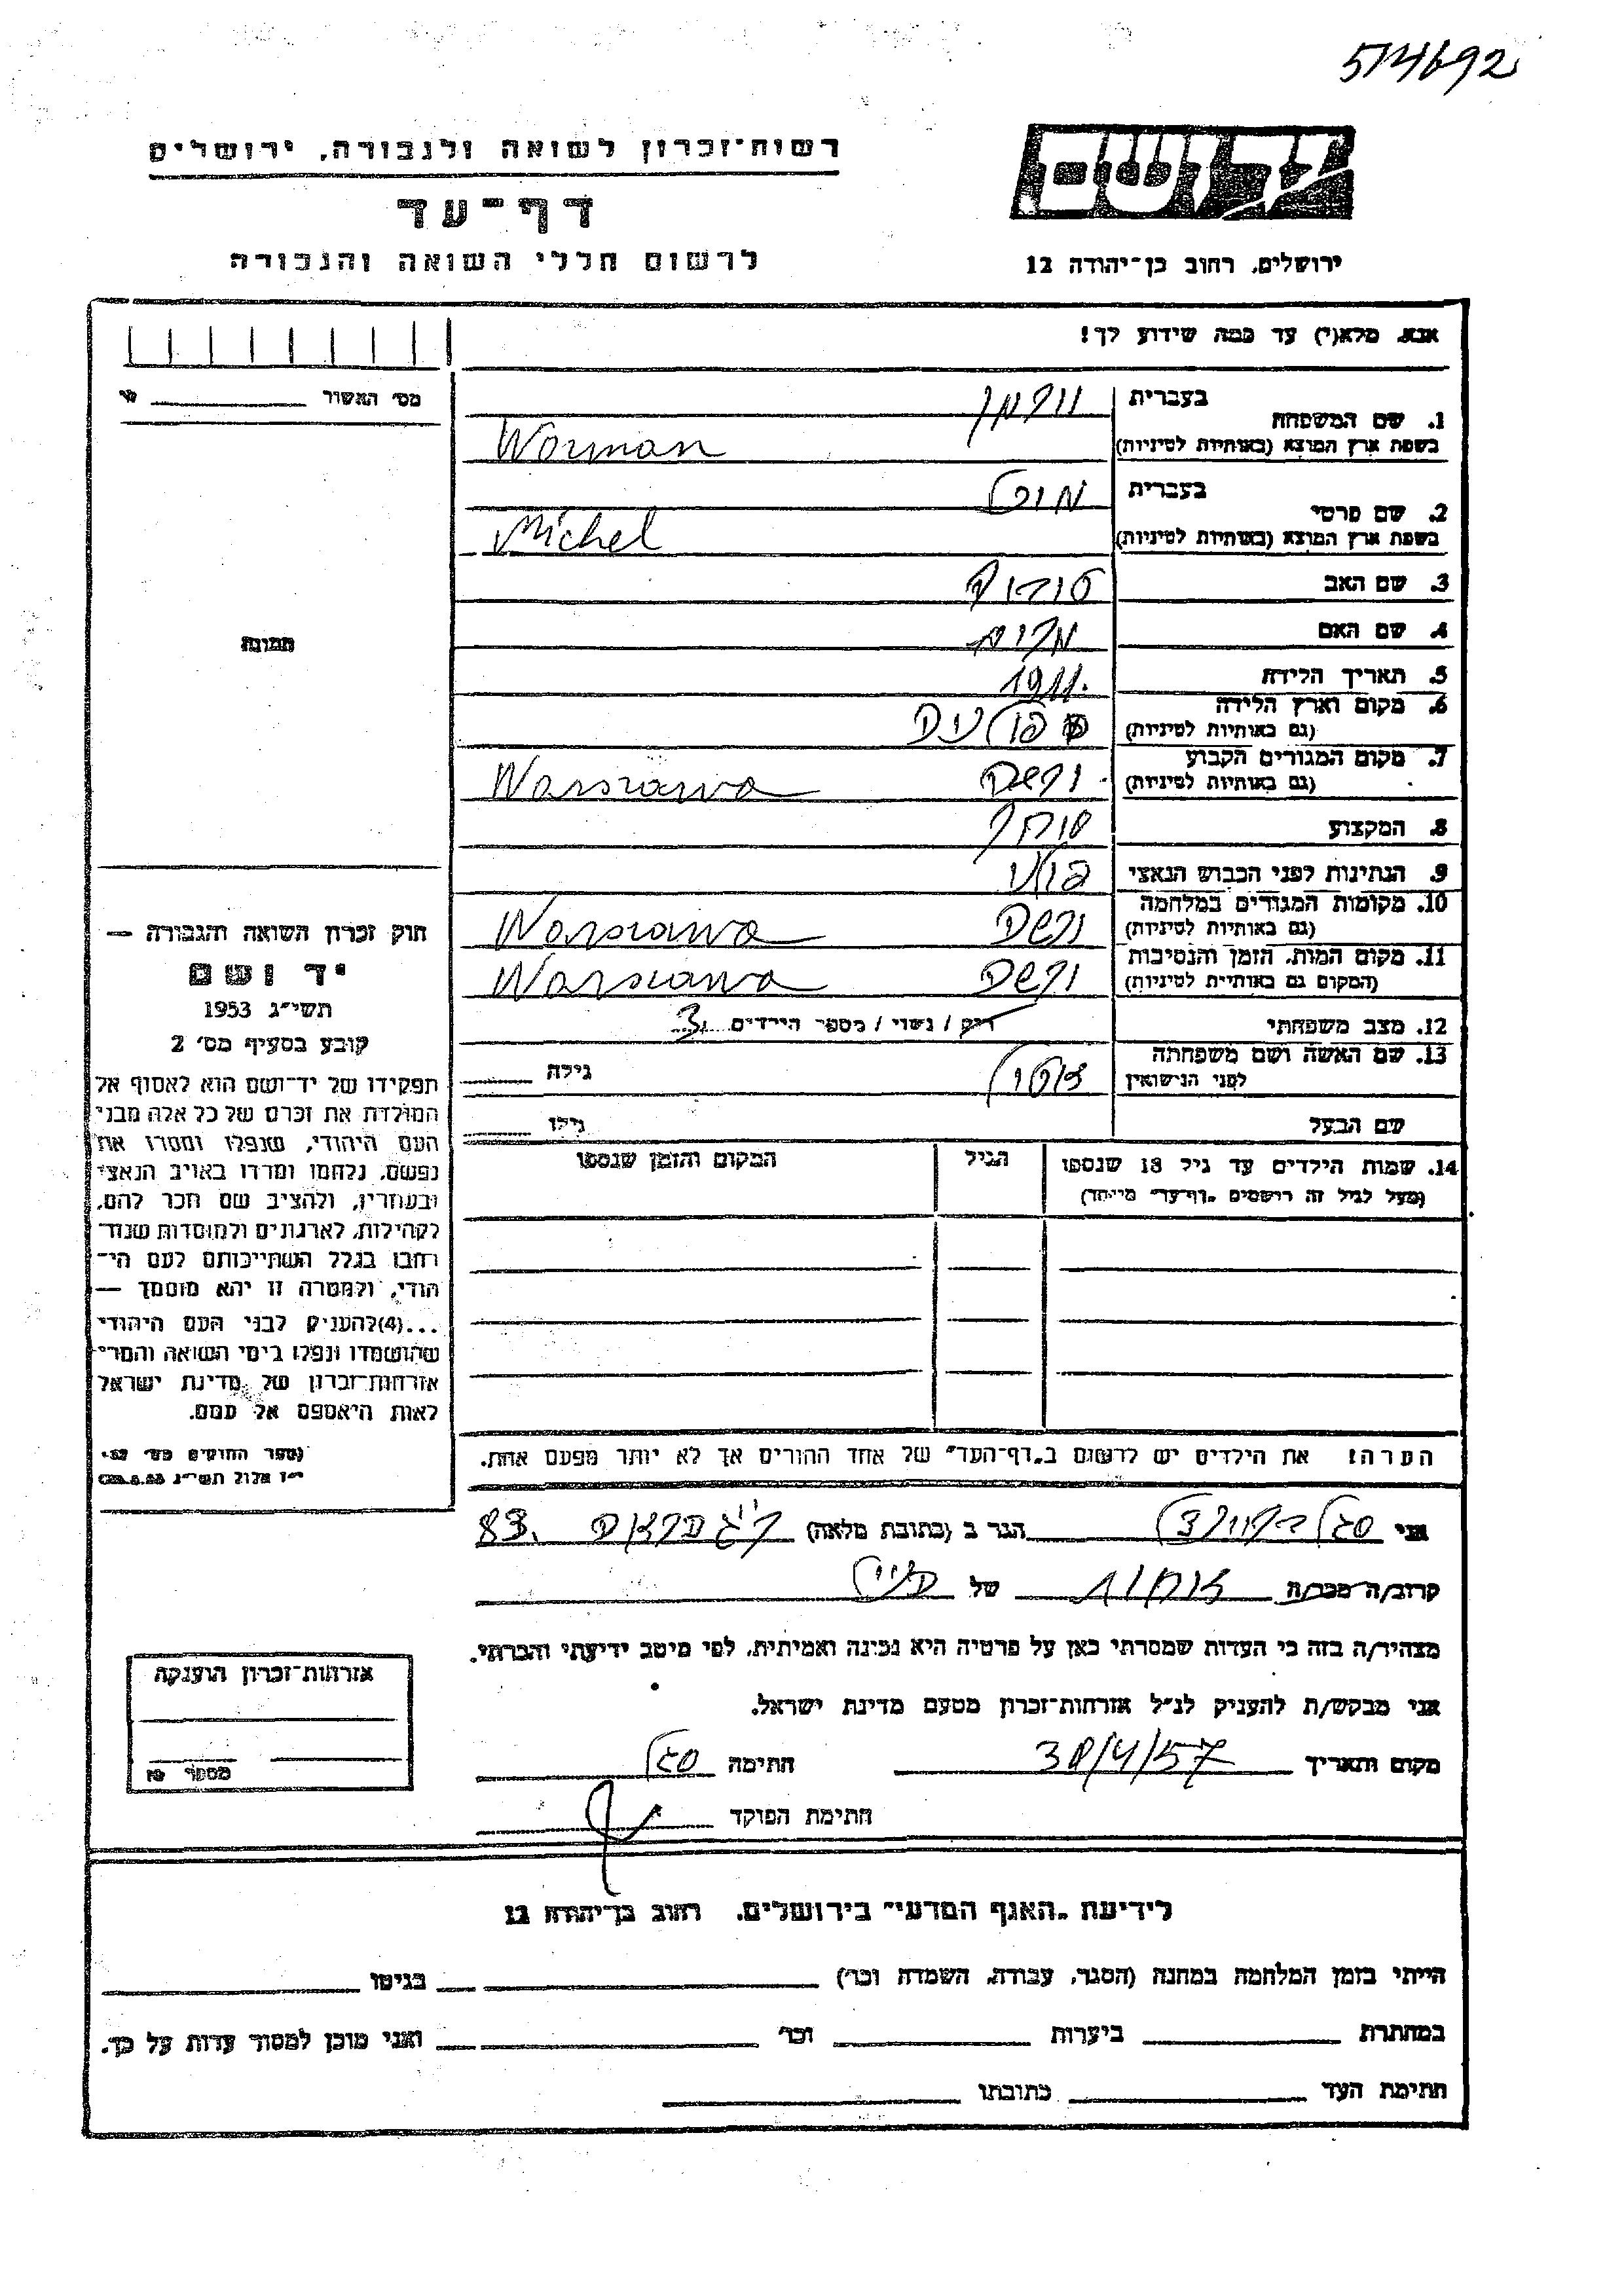 514692
רשות-זכרון לשואה ולגבורה, ירושלים
דף-עד
לרשום חללי השואה והגבורה
ידושם
ירושלים, רחוב בן-יהודה 12
אנא, מלא(י) עד כמה שידוע לך!
מס' האשור
1. שם המשפחה
בעברית
וורמן
בשפת ארץ המוצא (באותיות לטיניות)
Worman
2. שם פרטי
בעברית
בשפת ארץ המוצא (באותיות לטיניות)
Michel
3. שם האב
4. שם האם
מרים
5. תאריך הלידה
1911.
6. מקום וארץ הלידה
(גם באותיות לטיניות)
7. מקום המגורים הקבוע
(גם באותיות לטיניות)
ורשה Warszawa
8. המקצוע
סוחר
9. הנתינות לפני הכבוש הנאצי
פולני
10. מקומות המגורים במלחמה
(גם באותיות לטיניות)
ורשה Warszawa
11. מקום המות, הזמן והנסיבות
(המקום גם באותיות לטיניות)
ורשה Warszawa
12. מצב משפחתי
רווק / נשוי / מספר הילדים 3
13. שם האשה ושם משפחתה
לפני הנישואין
גילה
שם הבעל
גילו
14. שמות הילדים עד גיל 18 שנספו
(מעל לגיל זה רושמים "דף-עד" מיוחד)
הגיל
המקום והזמן שנספו
הערה: את הילדים יש לרשום ב"דף-העד" של אחד ההורים אך לא יותר מפעם אחת.
תמונה
חוק זכרון השואה והגבורה —
יד ושם
תשי"ג 1953
קובע בסעיף מס' 2
תפקידו של יד-ושם הוא לאסוף אל
המולדת את זכרם של כל אלה מבני
העם היהודי, שנפלו ומסרו את
נפשם, נלחמו ומרדו באויב הנאצי
ובעוזריו, ולהציב שם וזכר להם,
לקהילות, לארגונים ולמוסדות שנח-
רבו בגלל השתייכותם לעם הי-
הודי, ולמטרה זו יהא מוסמך —
...(4)להעניק לבני העם היהודי
שהושמדו ונפלו בימי השואה והמרי
אזרחות-זכרון של מדינת ישראל
לאות היאספם אל עמם.
(ספר החוקים מס' 132
י"ז אלול תשי"ג 28.8.53)
אני סגל הגר ב (כתובת מלאה) 83.
קרוב/ה מכר/ה של
מצהיר/ה בזה כי העדות שמסרתי כאן על פרטיה היא נכונה ואמיתית, לפי מיטב ידיעתי והכרתי.
אני מבקש/ת להעניק לנ"ל אזרחות-זכרון מטעם מדינת ישראל.
מקום ותאריך 30/4/57 חתימה סגל
חתימת הפוקד
אזרחות-זכרון הוענקה
מספר
לידיעת "האגף המדעי" בירושלים, רחוב בן-יהודה 12
הייתי בזמן המלחמה במחנה (הסגר, עבודה, השמדה וכו') בגיטו
במחתרת ביערות וכו' ואני מוכן למסור עדות על כך.
חתימת העד כתובתו